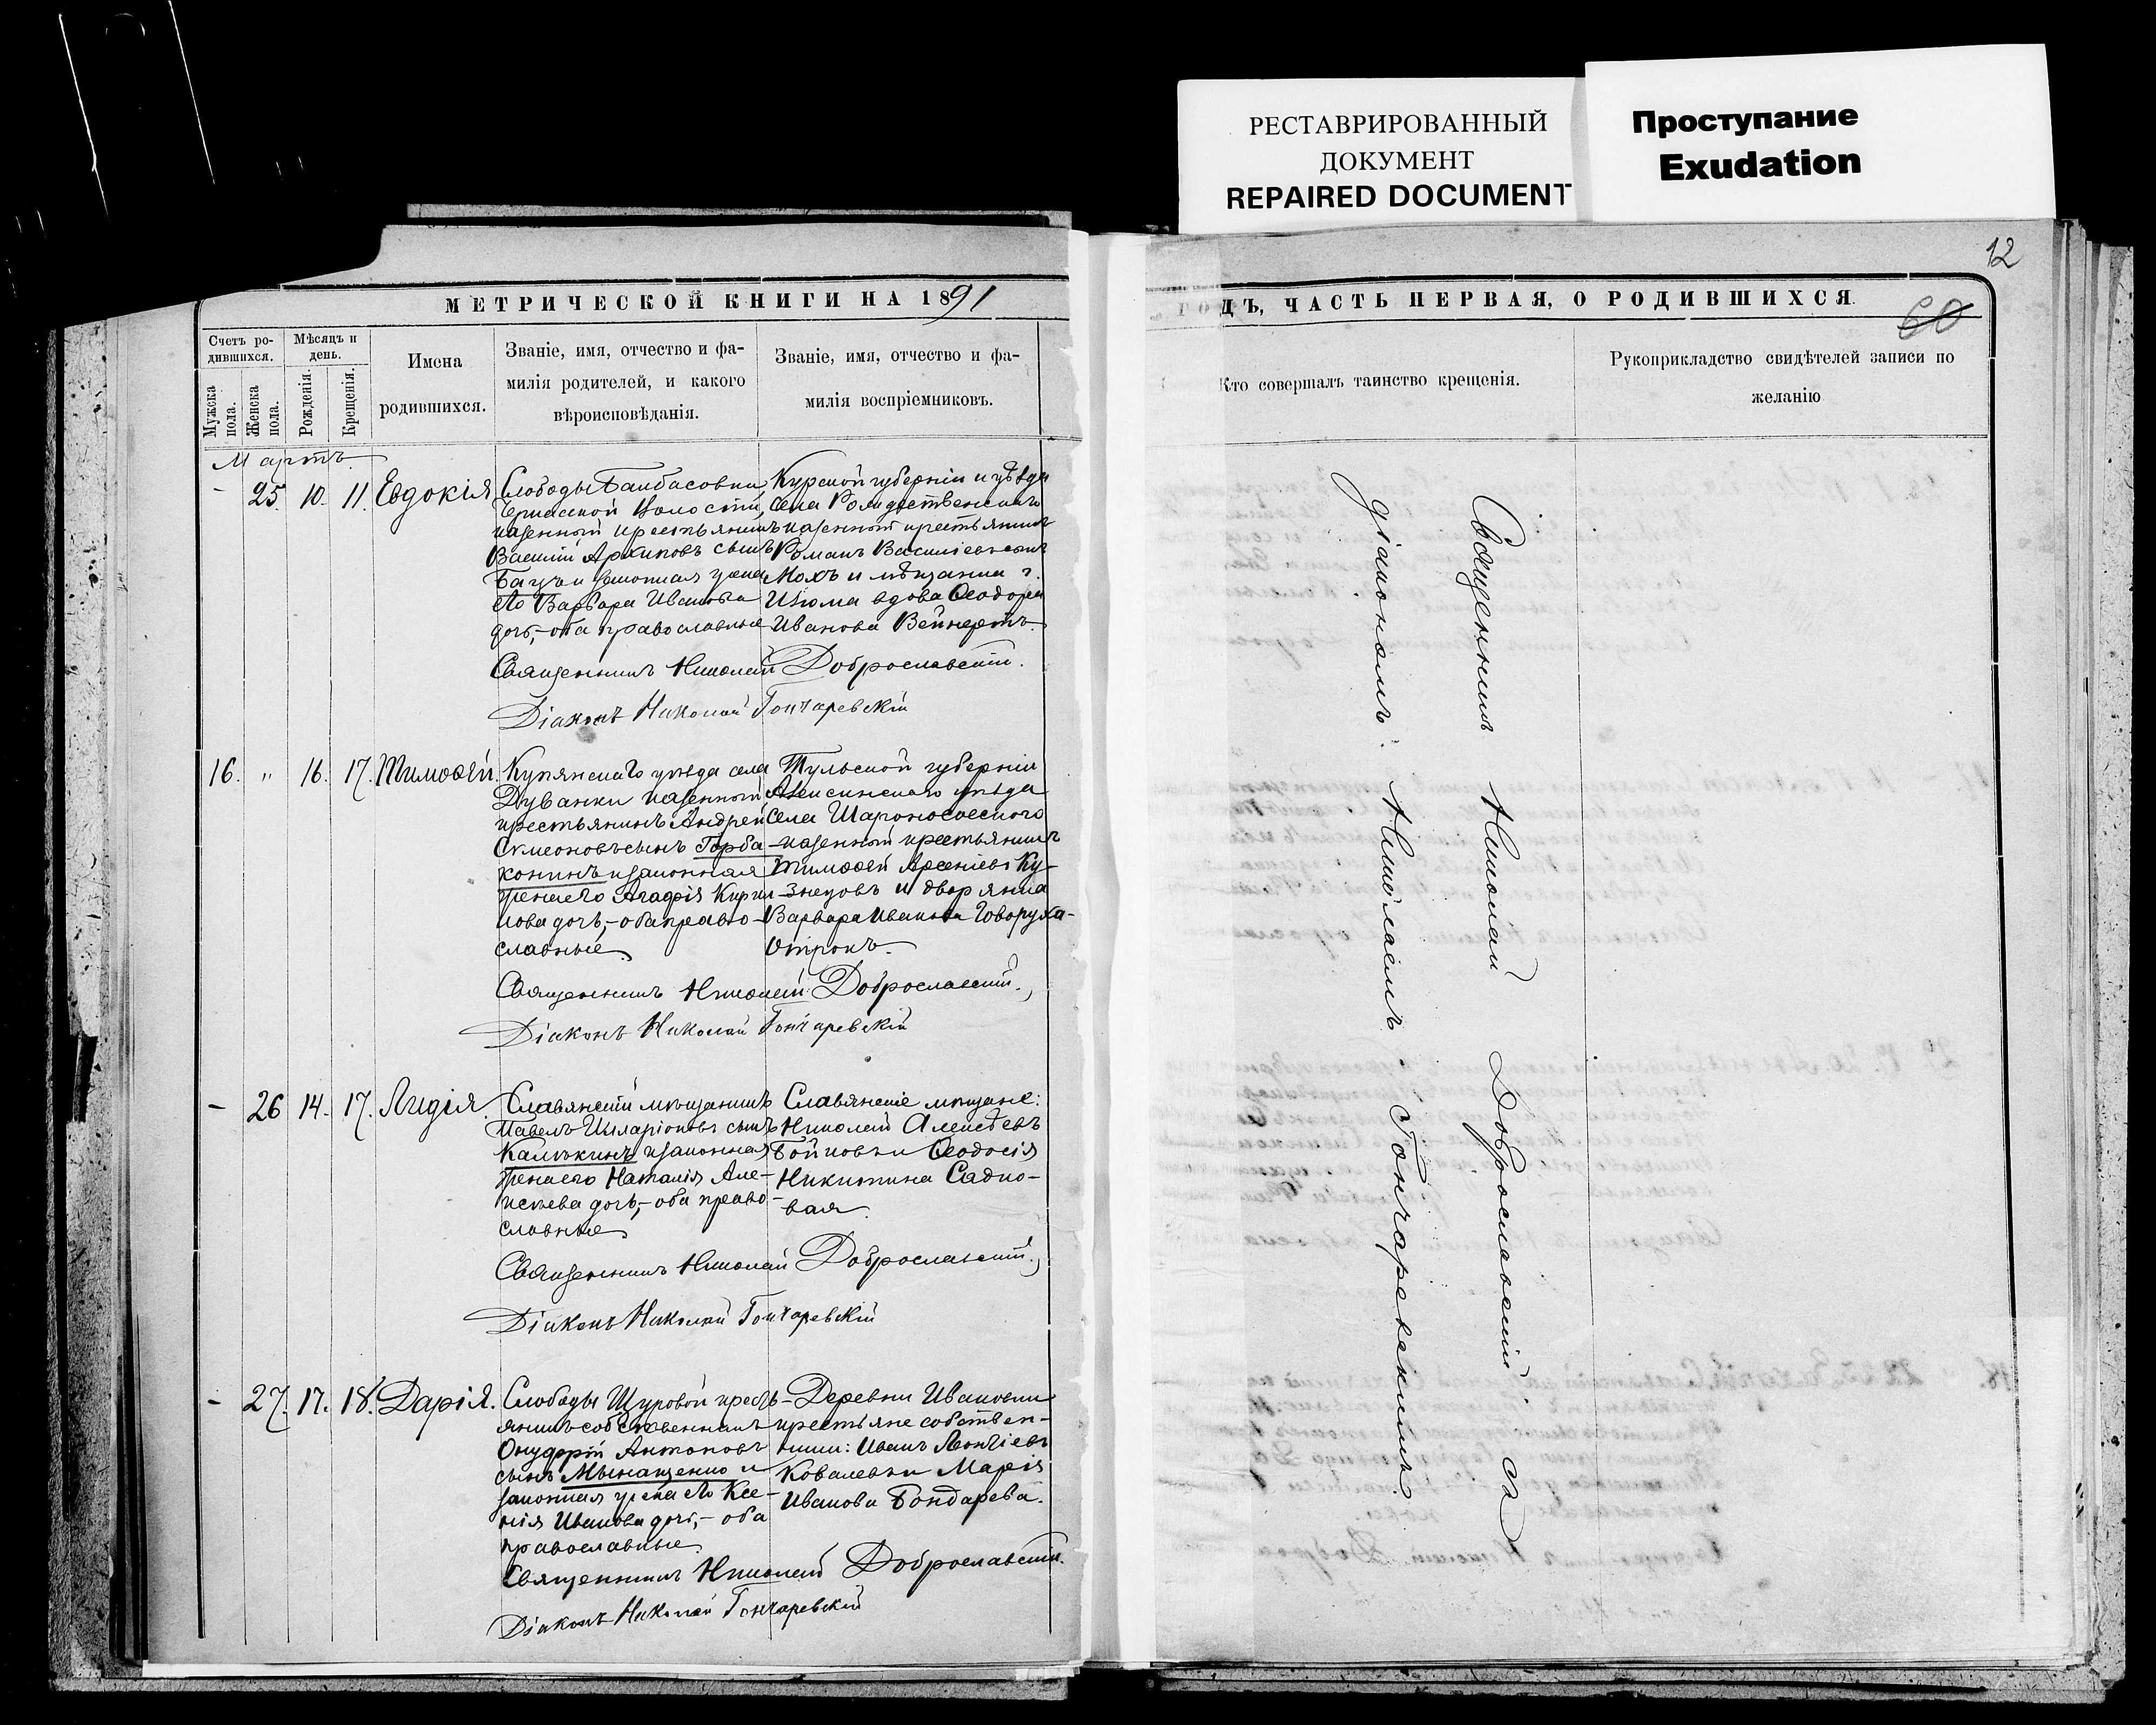 РЕСТАВРИРОВАННЫЙ
ДОКУМЕНТ
REPAIRED DOCUMENT
Проступание
Exudation
12
МЕТРИЧЕСКОЙ КНИГИ НА 1891
ГОДЪ, ЧАСТЬ ПЕРВАЯ, О РОДИВШИХСЯ.
60
Счетъ ро-
дившихся.
Мужска
пола.
Женска
пола.
Мѣсяцъ и
день.
Рожденія.
Крещенія.
Имена
родившихся.
Званіе, имя, отчество и фа-
милія родителей, и какого
вѣроисповѣданія.
Званіе, имя, отчество и фа-
милія воспріемниковъ.
Кто совершалъ таинство крещенія.
Рукоприкладство свидѣтелей записи по
желанію
Мартъ.
- 25. 10. 11. Евдокія
Слободы Банбасовки
волости,
казенный крестьянинъ
Василій Архиповъ сынъ
и законная жена
его Варвара Иванова
дочь,-оба православные
Курской губерніи и уѣзда
села Рождественскаго
казенный крестьянинъ
Романъ Василіевъ сынъ
Мохъ и мѣщанка г.
Изюма вдова Ѳеодора
Иванова Вейнертъ.
Священникъ Николай Доброславскій.
Діаконъ Николай Гончаревскій
16. " 16. 17. Тимоѳей.
Купянскаго уѣзда села
Дуванки казенный
крестьянинъ Андрей
Симеоновъ сынъ Горба-
конинъ и законная
жена его Агафія Кирил-
лова дочь,-оба право-
славные
Тульской губерніи
Алексинскаго уѣзда
села
казенный крестьянинъ
Тимоѳей Арсеніевъ Ку-
знецовъ и дворянка
Варвара Иванова Говоруха-
Отрокъ.
Священникъ Николай Доброславскій.
Діаконъ Николай Гончаревскій
- 26 14. 17. Лидія.
Славянскій мѣщанинъ
Павелъ Иларіоновъ сынъ
Калмыкинъ и законная
жена его Наталія Але-
ксѣева дочь,-оба право-
славные
Славянскіе мѣщане:
Николай Алексѣевъ
Бойковъ и Ѳеодосія
Никитина Садко-
вая.
Священникъ Николай Доброславскій.
Діаконъ Николай Гончаревскій
- 27. 17. 18. Дарія.
Слободы Щуровой кресть-
янинъ собственникъ
Онуфрій Антоновъ
сынъ и
законная жена его Ксе-
нія Иванова дочь,- оба
православные
Деревни Ивановки
крестьяне собствен-
ники: Иванъ Леонтіевъ
Ковалевъ и Марія
Иванова Бондарева.
Священникъ Николай Доброславскій.
Діаконъ Николай Гончаревскій
Священникъ Николай Доброславскій съ
діакономъ Николаемъ Гончаревскимъ.